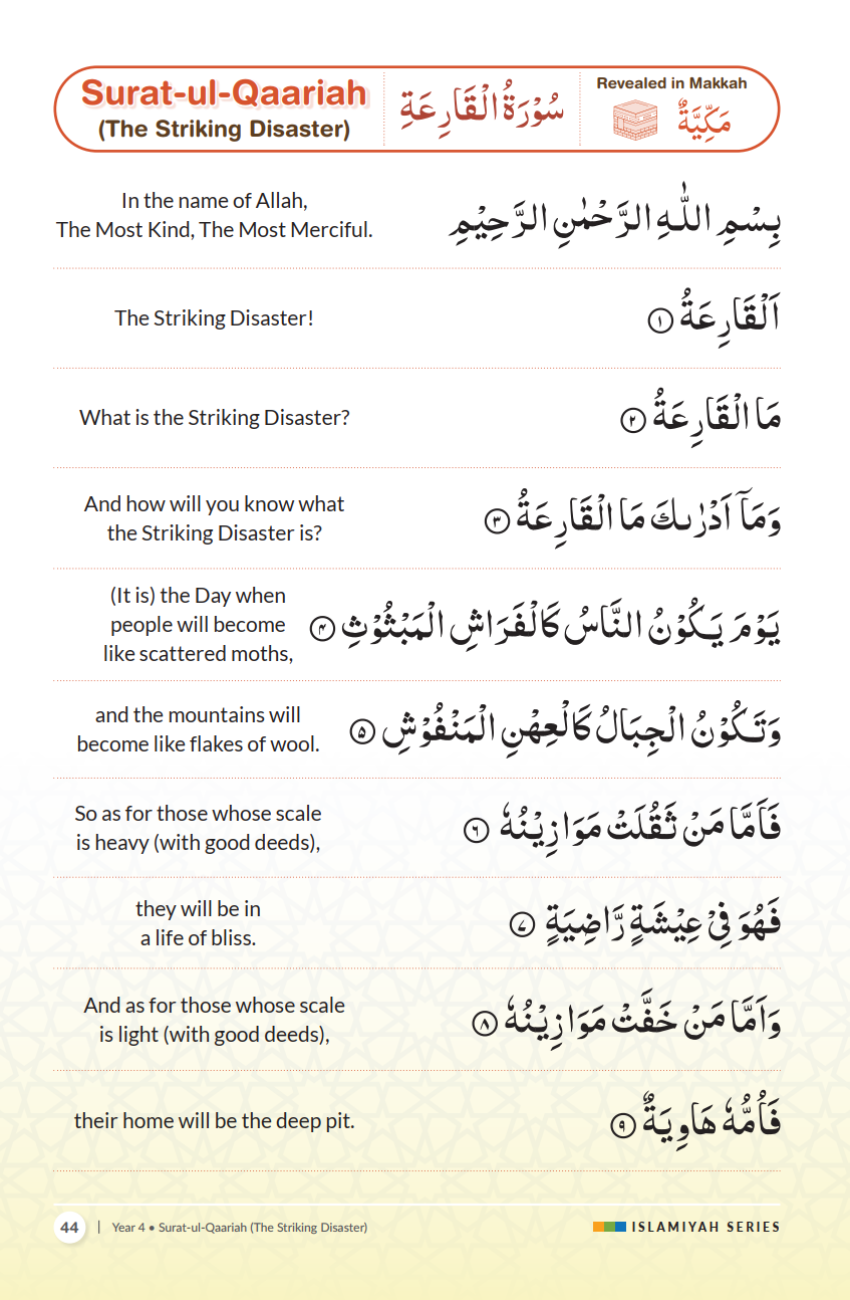 Surat-ul-Qaariah
(The Striking Disaster)
سُوْرَةُ الْقَارِعَةِ
Revealed in Makkah
مَكِّيَّةٌ
In the name of Allah,
The Most Kind, The Most Merciful.
بِسْمِ اللّٰهِ الرَّحْمٰنِ الرَّحِيْمِ
The Striking Disaster!
اَلْقَارِعَةُ ١
What is the Striking Disaster?
مَا الْقَارِعَةُ ٢
And how will you know what
the Striking Disaster is?
وَمَآ اَدْرٰىكَ مَا الْقَارِعَةُ ٣
(It is) the Day when
people will become
like scattered moths,
يَوْمَ يَكُوْنُ النَّاسُ كَالْفَرَاشِ الْمَبْثُوْثِ ۴
and the mountains will
become like flakes of wool.
وَتَكُوْنُ الْجِبَالُ كَالْعِهْنِ الْمَنْفُوْشِ ۵
So as for those whose scale
is heavy (with good deeds),
فَاَمَّا مَنْ ثَقُلَتْ مَوَازِيْنُهٗ ٦
they will be in
a life of bliss.
فَهُوَ فِيْ عِيْشَةٍ رَّاضِيَةٍ ٧
And as for those whose scale
is light (with good deeds),
وَاَمَّا مَنْ خَفَّتْ مَوَازِيْنُهٗ ٨
their home will be the deep pit.
فَاُمُّهٗ هَاوِيَةٌ ٩
44 | Year 4 • Surat-ul-Qaariah (The Striking Disaster)
ISLAMIYAH SERIES